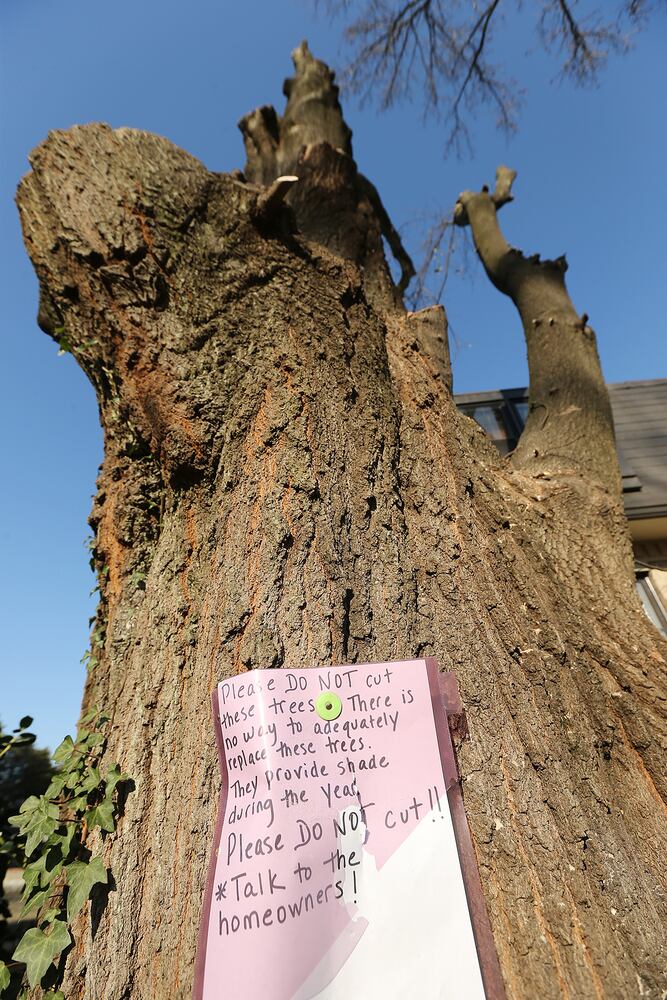 Please DO NOT cut
these trees. There is
no way to adequately
replace these trees.
They provide shade
during the year.
Please DO NOT cut!!
*Talk to the
homeowners!